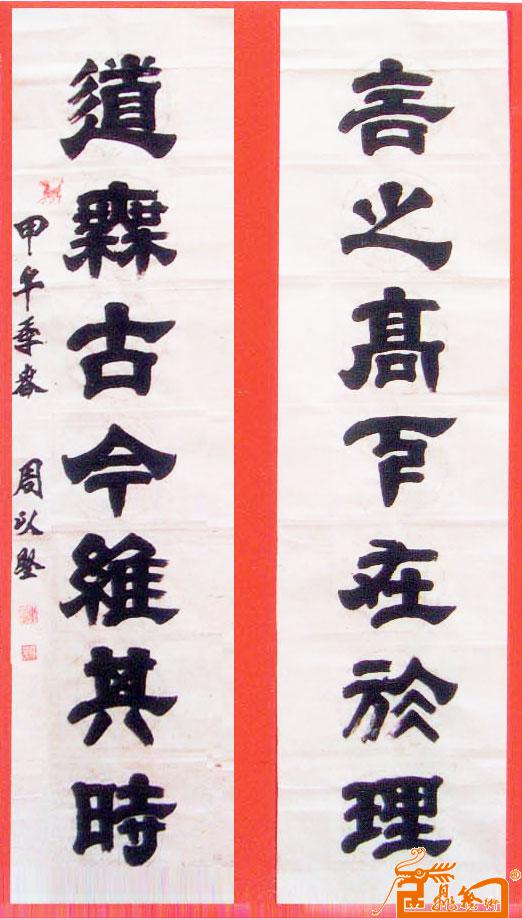 言之高下在於理
道無古今維其時
甲午季春 周以堅